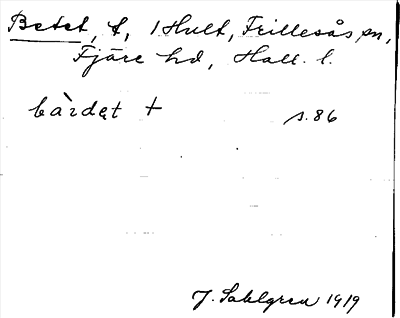 Betet, t, 1 Hult, Frillesås sn,
Fjäre hd, Hall. l.
bàrdet + s. 86
J. Sahlgren 1919